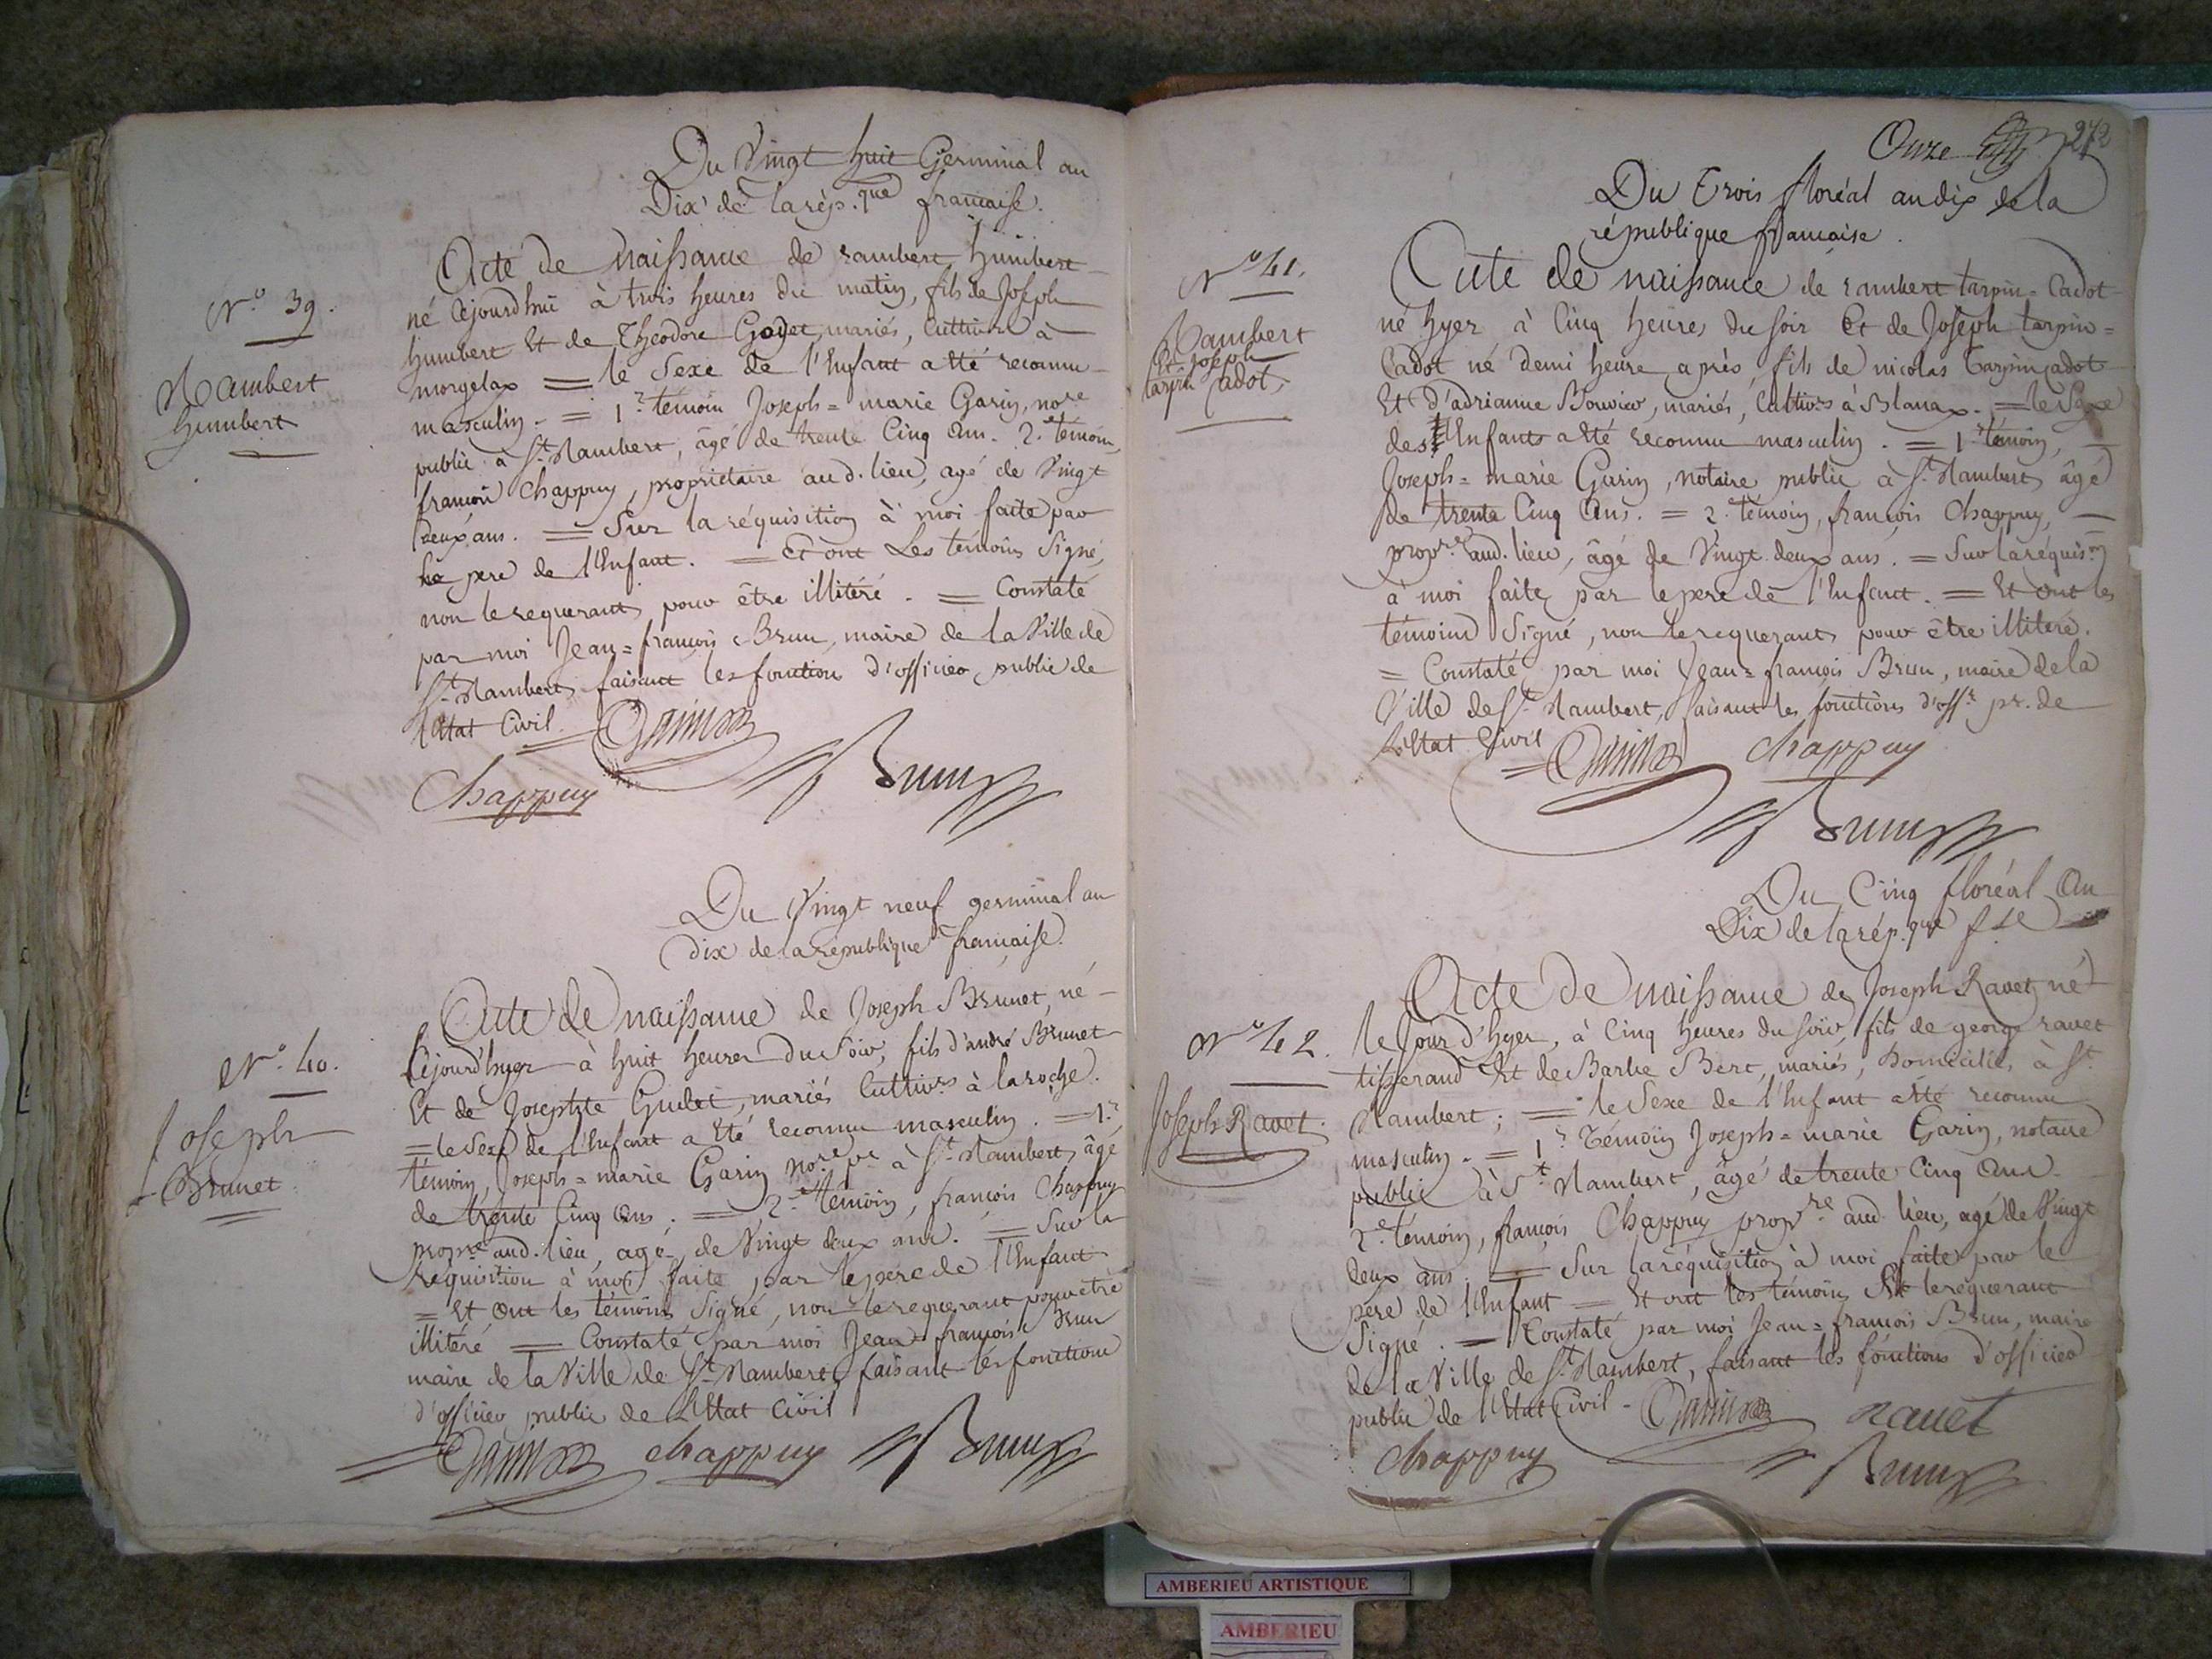 Du Vingt huit Germinal an
Dix de la rép.que française.
N.o 39.
Rambert
humbert
Acte de Naissance de rambert humbert
né Cejourdhui à trois heures du matin, fils de Joseph
humbert Et de Theodore Godet, mariés, Cultivrs à
morgelas = le Sexe de l'Enfant a Eté reconnu
masculin. = 1.r témoin Joseph = marie Garin, nore
public à St. Rambert, âgé de trente Cinq ans. 2.e témoin,
françois Chappuy, propriétaire aud. lieu, agé de Vingt
Deux ans. = Sur la réquisition à moi faite par
Le pere de l'Enfant. = Et ont Les témoins Signé,
non le requerant, pour être illitéré. = Constaté
par moi Jean = françois Brun, maire de la Ville de
St. Rambert, faisant les fonctions d'officier public de
l'Etat Civil.
Garin
Chappuy
Brun
Du Vingt neuf germinal an
dix de la république française.
N.o 40.
Joseph
Brunet
Acte de naissance de Joseph Brunet, né
Cejourd'hyer à huit heures du Soir, fils d'andré Brunet
Et de Josephte Gudet, mariés Cultivrs à la roche.
= le Sexe de l'Enfant a Eté reconnu masculin. = 1.r
témoin, Joseph = marie Garin nore pc à St. Rambert, âgé
de trente Cinq ans; = 2.e témoin, françois Chappuy
propre aud. lieu, agé, de Vingt deux ans. = Sur la
réquisition à moi faite, par le père de l'Enfant
= Et ont les témoins Signé, non le requerant pour être
illitéré = Constaté par moi Jean = françois Brun
maire de la Ville de St. Rambert, faisant les fonctions
d'officier public de l'Etat Civil
Garin Chappuy Brun
Onze 272
Du Trois floréal an dix de la
république française.
N.o 41.
Rambert
Et Joseph
tarpin Cadot,
Acte de naissance de rambert tarpin = Cadot
né hyer à Cinq heures du soir Et de Joseph tarpin =
Cadot né demi heure après, fils de nicolas tarpin Cadot
Et D'adrianne Bouvier, mariés, Cultivrs à Blanax. = le Sexe
des Enfants a Eté reconnu masculin. = 1.r témoin,
Joseph = marie Garin, notaire public à St. Rambert, âgé
de trente Cinq ans. = 2.e témoin, françois Chappuy,
propre aud. lieu, âgé de Vingt deux ans. = Sur la réquison
à moi faite, par le pere de l'Enfant. = Et ont les
témoins Signé, non le requerant, pour être illitéré.
= Constaté par moi Jean = françois Brun, maire de la
Ville de St. Rambert, faisant les fonctions d'offr. pc. de
l'Etat Civil
Garin Chappuy
Brun
Du Cinq floréal an
Dix de la rép.que fse
N.o 42.
Joseph Ravet.
Acte de naissance de Joseph Ravet, né
le Jour d'hyer, à Cinq heures du soir, fils de george ravet
tisserand Et de Barbe Bert, mariés, Domiciliés à St.
Rambert; = le Sexe de l'Enfant a Eté reconnu
masculin. = 1.r Témoin Joseph = marie Garin, notaire
public à St. Rambert, âgé de trente Cinq ans.
2.e témoin, françois Chappuy propre aud. lieu, agé de Vingt
deux ans. = Sur la réquisition à moi faite par le
père de l'Enfant = Et ont les témoins Et le requerant
Signé. = Constaté par moi Jean = françois Brun, maire
de la Ville de St. Rambert, faisant les fonctions d'officier
public de l'Etat Civil -
Garin ravet
Chappuy Brun
AMBERIEU ARTISTIQUE
AMBERIEU